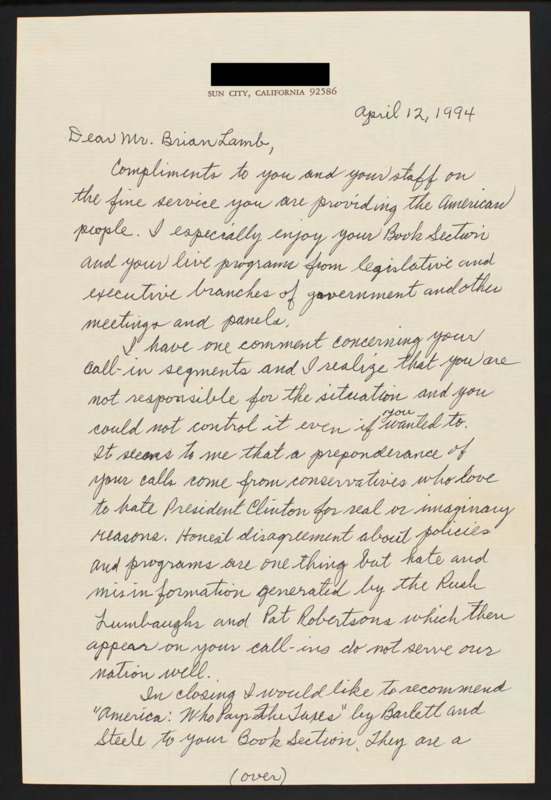 SUN CITY, CALIFORNIA 92586
April 12, 1994
Dear Mr. Brian Lamb,
Compliments to you and your staff on
the fine service you are providing the American
people. I especially enjoy your Book Section
and your live programs from legislative and
executive branches of government and other
meetings and panels.
I have one comment concerning your
call-in segments and I realize that you are
not responsible for the situation and you
could not control it even if you wanted to.
It seems to me that a preponderance of
your calls come from conservatives who love
to hate President Clinton for real or imaginary
reasons. Honest disagreement about policies
and programs are one thing but hate and
misinformation generated by the Rush
Lumbaughs and Pat Robertsons which then
appear on your call-ins do not serve our
nation well.
In closing I would like to recommend
"America: Who Pays the Taxes" by Barlett and
Steele to your Book Section. They are a
(over)